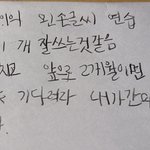 의 왼손글씨 연습
이 개 잘쓰는것같음
앞으로 2개월이면
기다려라 내가간다